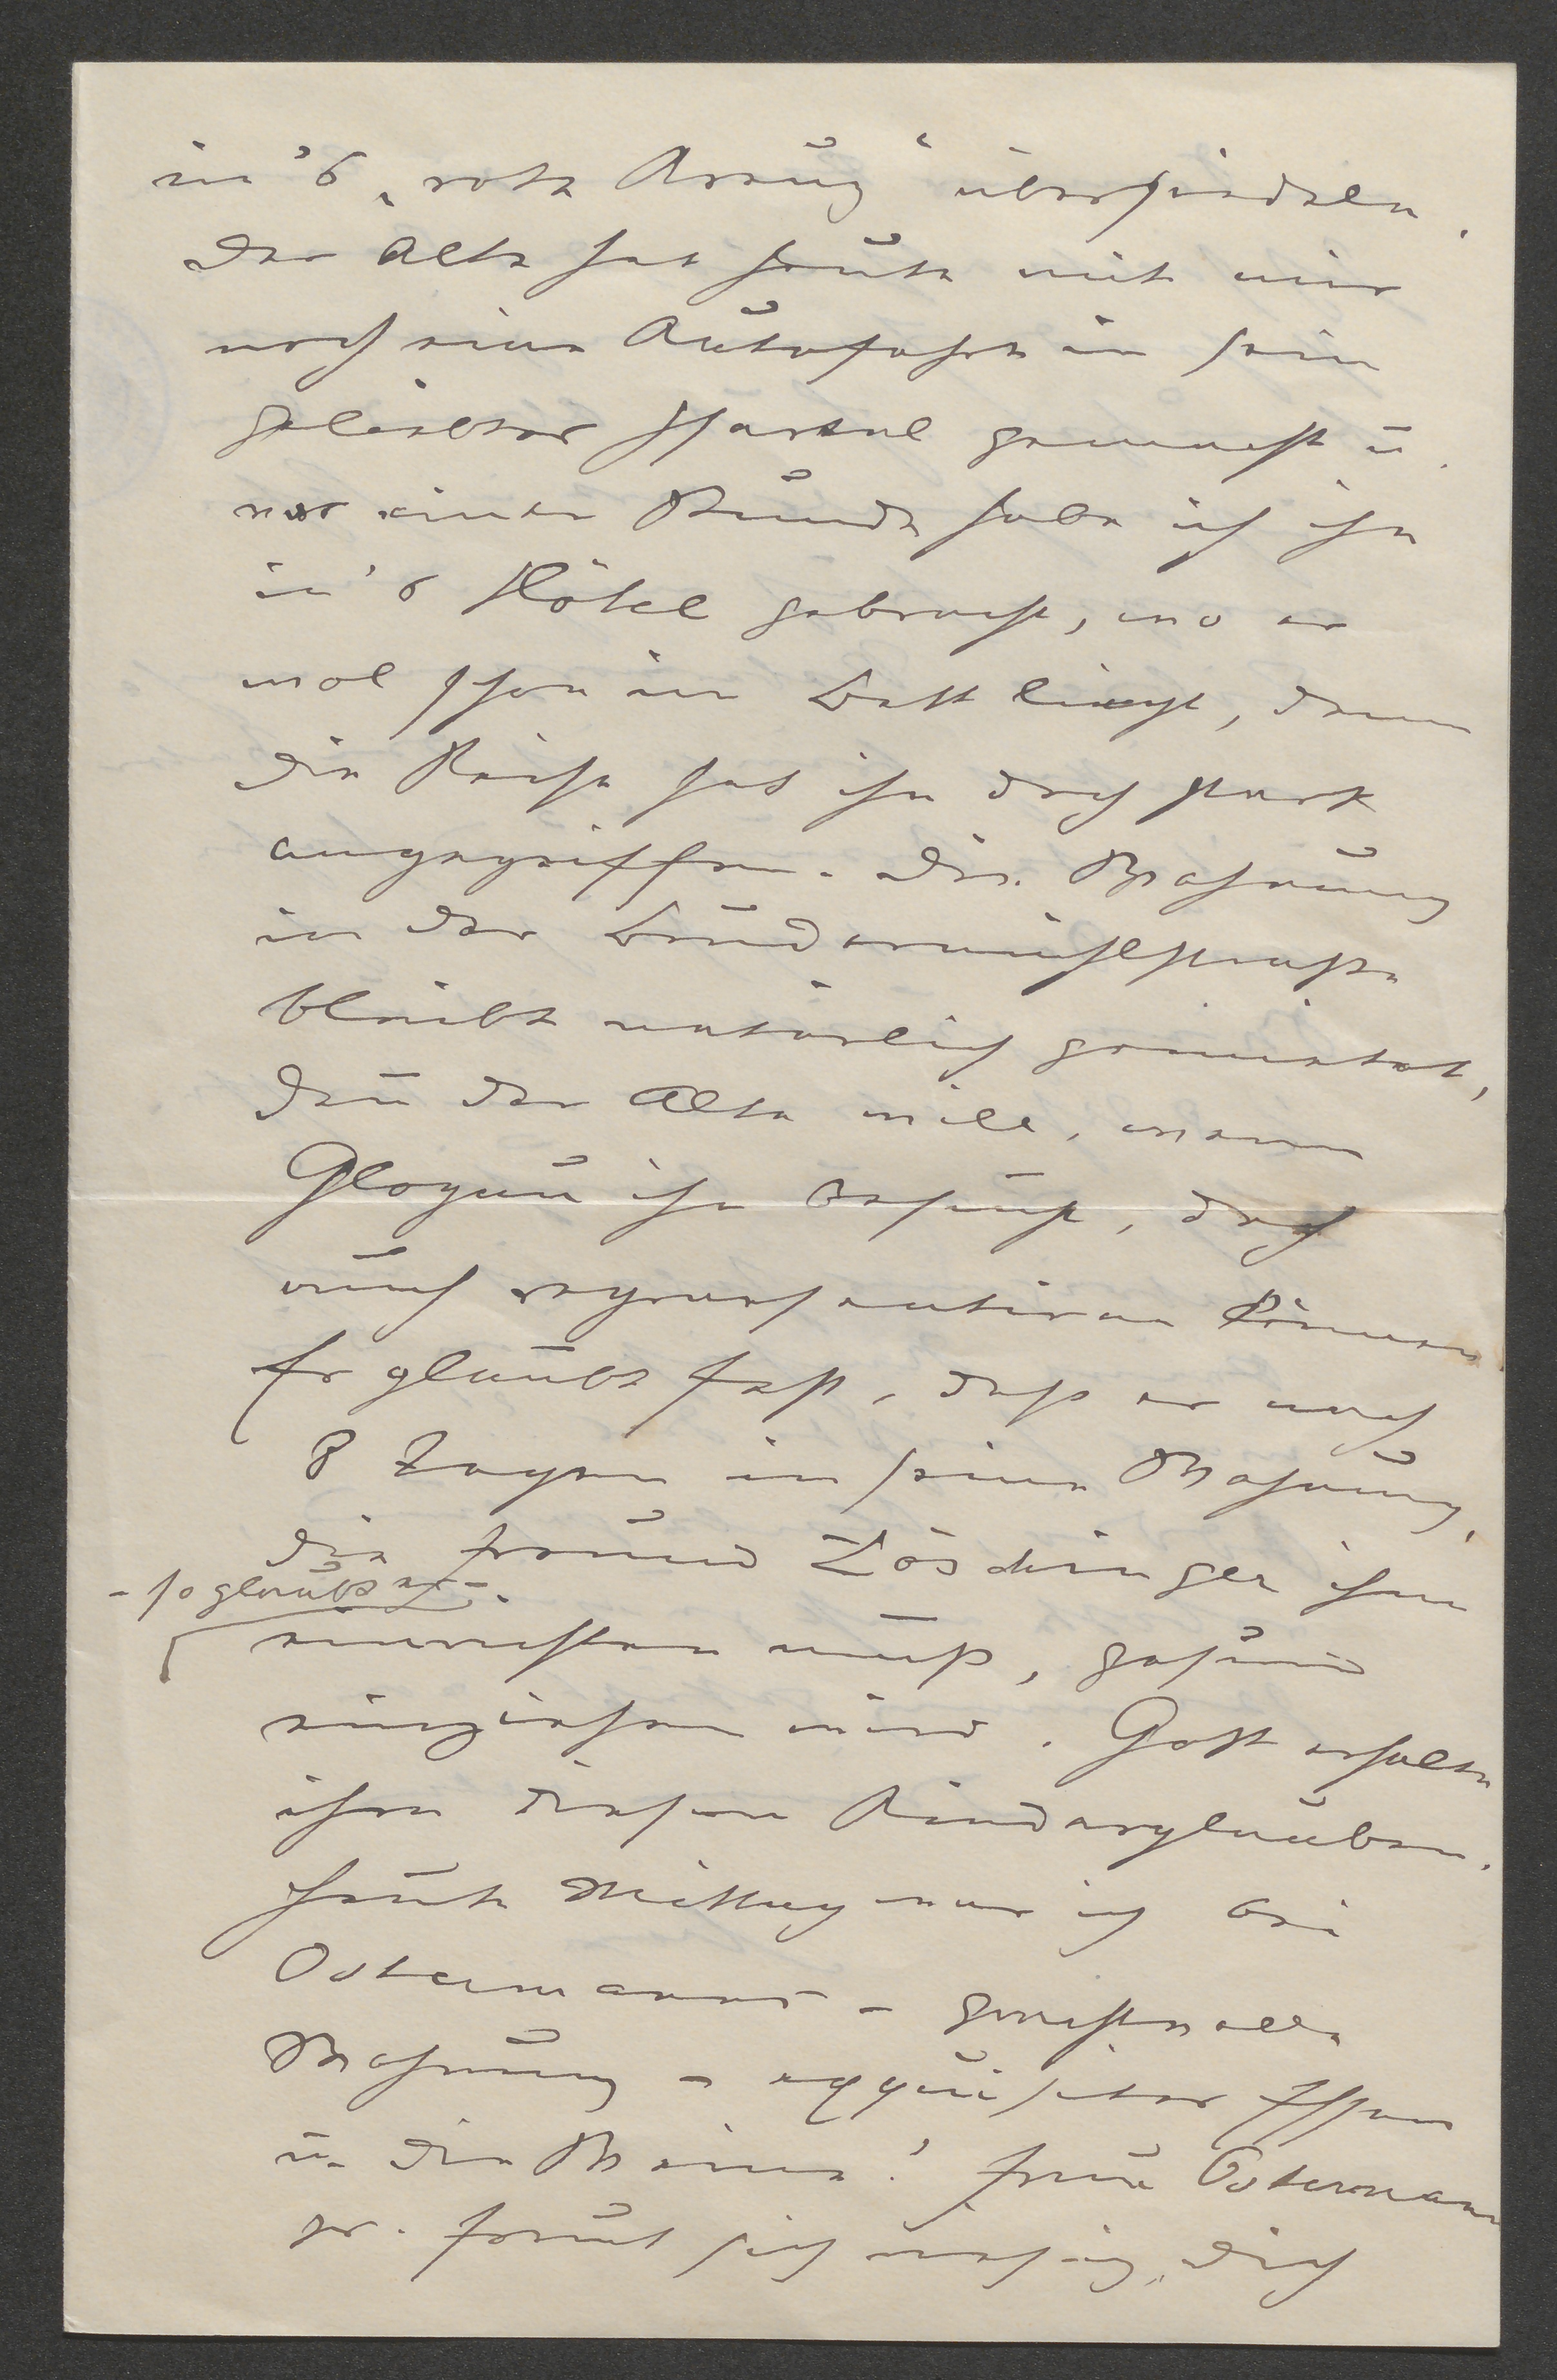 in's „rote Kreuz“ übersiedeln.
Der Alte hat heute mit mir
noch eine Autofahrt in sein
geliebtes Isartal gemacht u.
vor einer Stunde habe ich ihn
in's Hôtel gebracht, wo er
wol schon im Bett liegt, denn
die Reise hat ihn doch stark
angegriffen. Die Wohnung
in der Brudermühlstrasse
bleibt natürlich gemietet,
den̄ der Alte will, wenn
Glogau ihn besucht, doch
auch repraesentiren können
Er glaubt fest, dass er nach
8 Tagen in seine Wohnung,
die Freund Löschinger ihm
- so glaubt er -
einrichten muss, gesund
einziehen wird. Gott erhalte
ihm diesen Kinderglauben.
Heute Mittag war ich bei
Ostermanns - prachtvolle
Wohnung - exquisites Essen
u. die Weine! Frau Ostermann
sr. freut sich riesig, dich